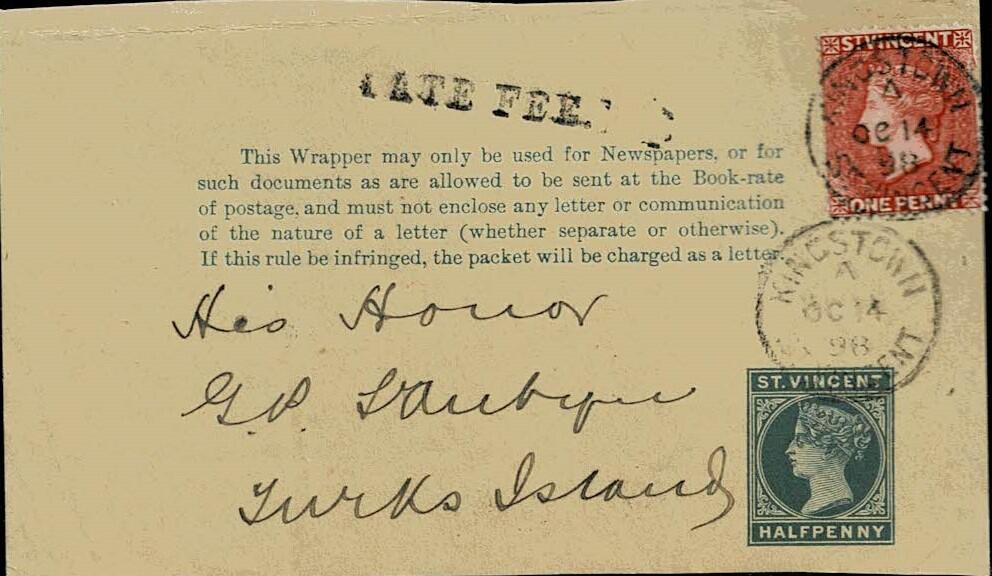 LATE FEE.
ST VINCENT
ONE PENNY
KINGSTOWN
A
OC 14
98
ST VINCENT
This Wrapper may only be used for Newspapers, or for
such documents as are allowed to be sent at the Book-rate
of postage, and must not enclose any letter or communication
of the nature of a letter (whether separate or otherwise).
If this rule be infringed, the packet will be charged as a letter.
KINGSTOWN
A
OC 14
98
ST VINCENT
His Honor
G.P. St Aubyn
Turks Island
ST. VINCENT
HALFPENNY